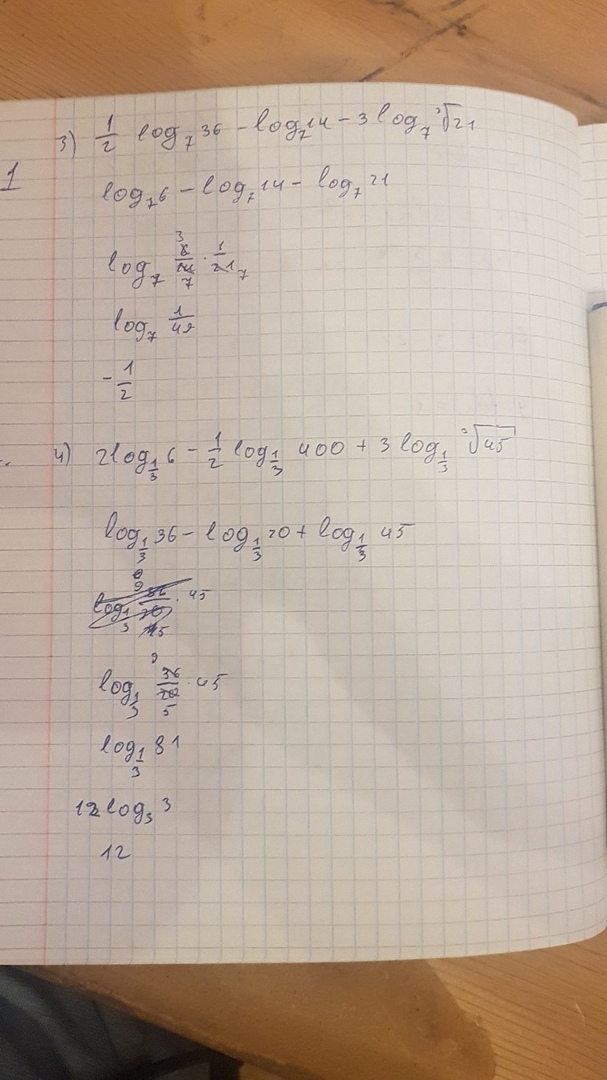 1
3) 1/2 log₇ 36 - log₇ 14 - 3 log₇ ³√21
log₇ 6 - log₇ 14 - log₇ 21
log₇ 6/14 · 1/21 3 7 7
log₇ 1/49
- 1/2
4) 2 log_1/3 6 - 1/2 log_1/3 400 + 3 log_1/3 ³√45
log_1/3 36 - log_1/3 20 + log_1/3 45
log_1/3 36/20 · 45
9
log_1/3 36/20 · 45
5
log_1/3 81
12 log₃ 3
12